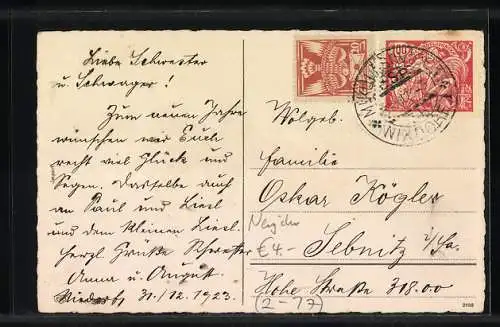 Liebe Schwester
u. Schwager!
Zum neuen Jahre
wünschen wir Euch
recht viel Glück und
Segen. Dasselbe auch
an Paul und Liesl
und dem kleinen Liesl.
Herzl. Grüße Schwester
Anna u. August.
31/12. 1923.
Wolgeb.
Familie
Oskar Kögler
Sebnitz
i/Sa.
Hohe Straße 318.00
€ 4.-
(2-17)